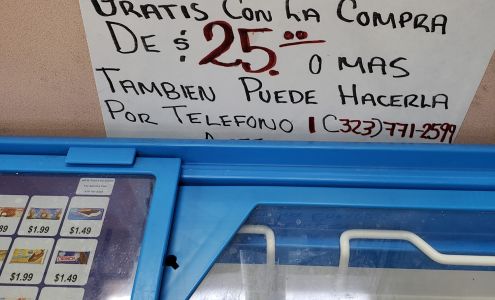 GRATIS CON LA COMPRA
DE $25.00 O MAS
TAMBIEN PUEDE HACERLA
POR TELEFONO 1 (323) 771-2599
$1.99 $1.49
$1.99 $1.49